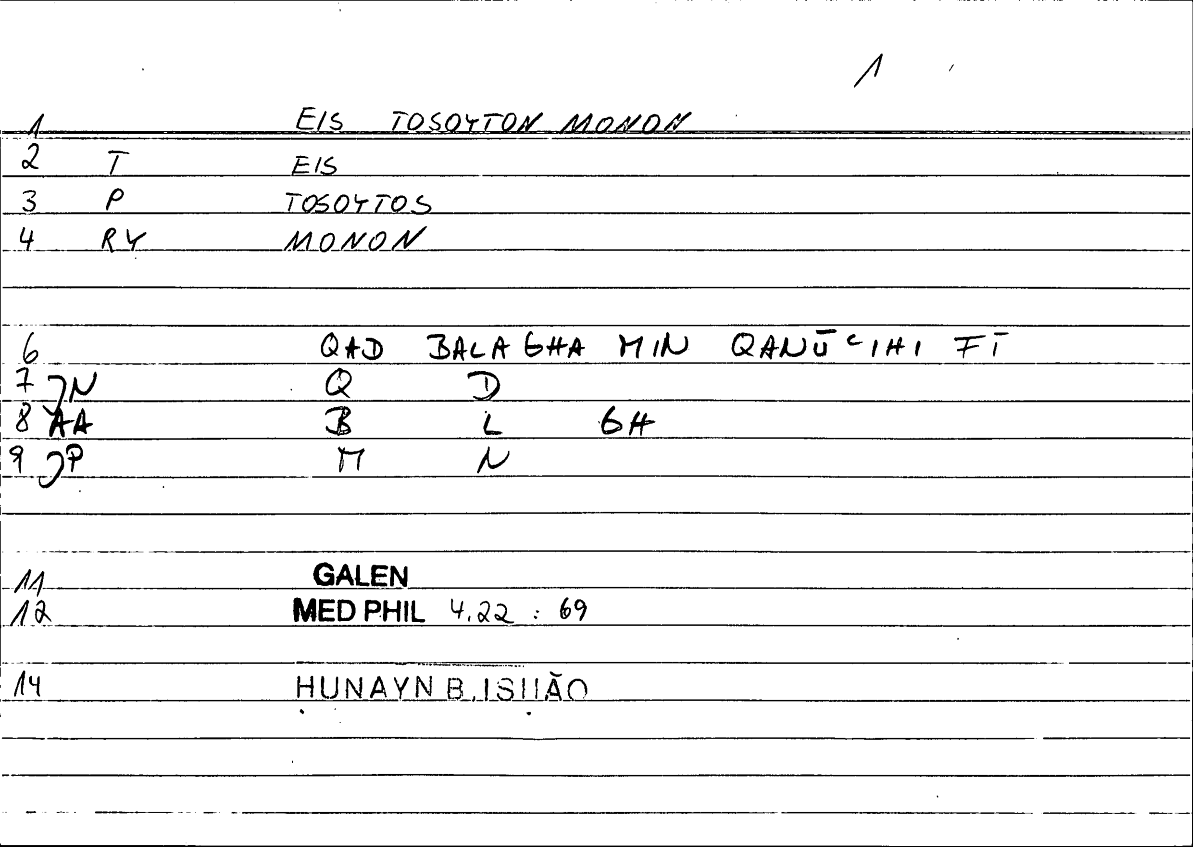 1
1 EIS TOSOYTON MONON
2 T EIS
3 P TOSOYTOS
4 RY MONON
6 QAD BALAGHA MIN QANŪʿIHI FĪ
7 JN Q D
8 AA B L GH
9 JP M N
11 GALEN
12 MED PHIL 4.22 : 69
14 HUNAYN B.